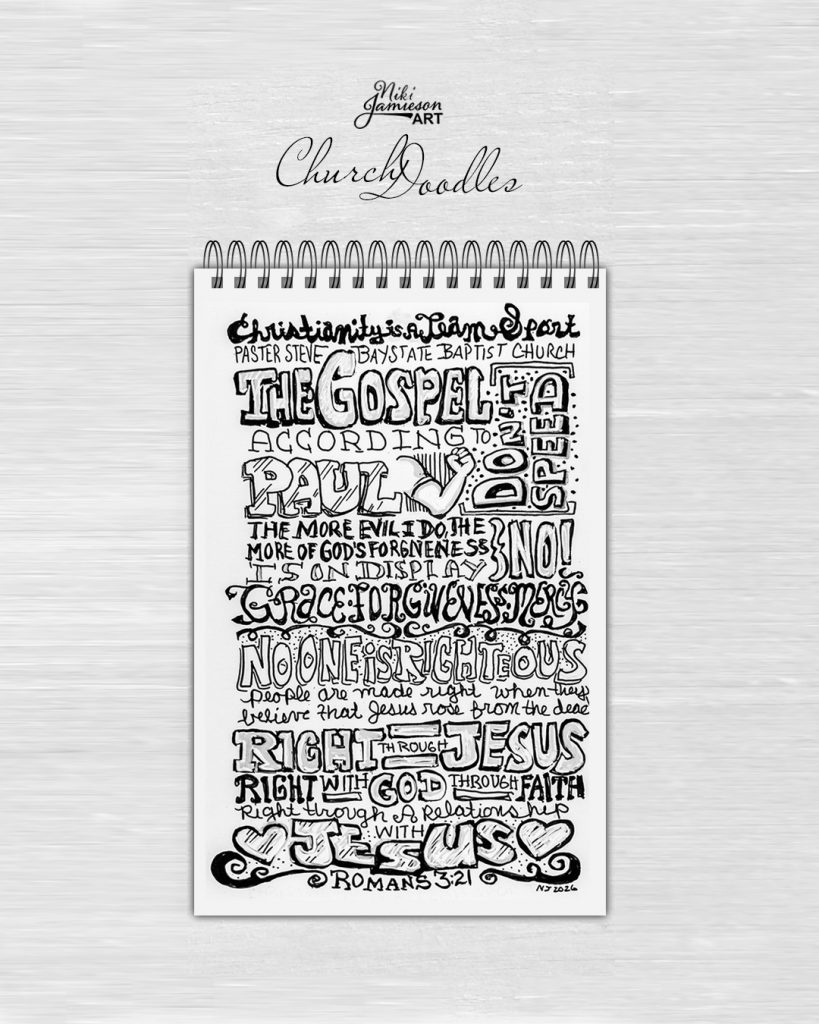 Niki
Jamieson
ART
Church Doodles
Christianity is A Team Sport
PASTER STEVE BAYSTATE BAPTIST CHURCH
THE GOSPEL
ACCORDING TO
PAUL
DON'T
SPEED
THE MORE EVIL I DO, THE
MORE OF GOD'S FORGNENESS
IS ON DISPLAY
} NO!
GRACE:FORGIVENESS:MERCY
NO ONE iS RIGHTEOUS
people are made right when they
believe that Jesus rose from the dead
RIGHT THROUGH JESUS
RIGHT WITH GOD THROUGH FAITH
Right through A Relationship
WITH
JESUS
ROMANS 3:21
NJ 2026